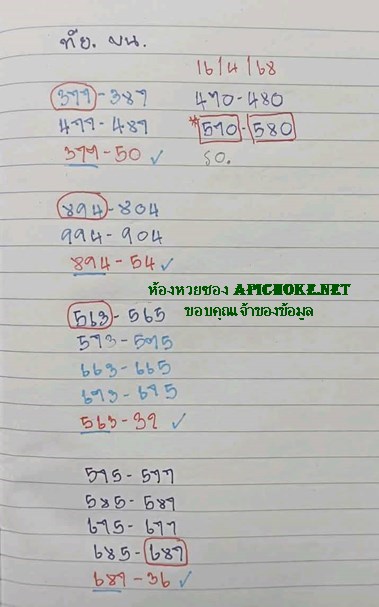 ทัย. บน.
16/4/68
377-387
477-487
377-50 ✓
470-480
*570-580
50.
894-804
994-904
894-54 ✓
ห้องหวยซอง APICHOKE.NET
ขอบคุณเจ้าของข้อมูล
563-565
573-575
663-665
673-675
563-32 ✓
575-577
585-587
675-677
685-687
687-36 ✓